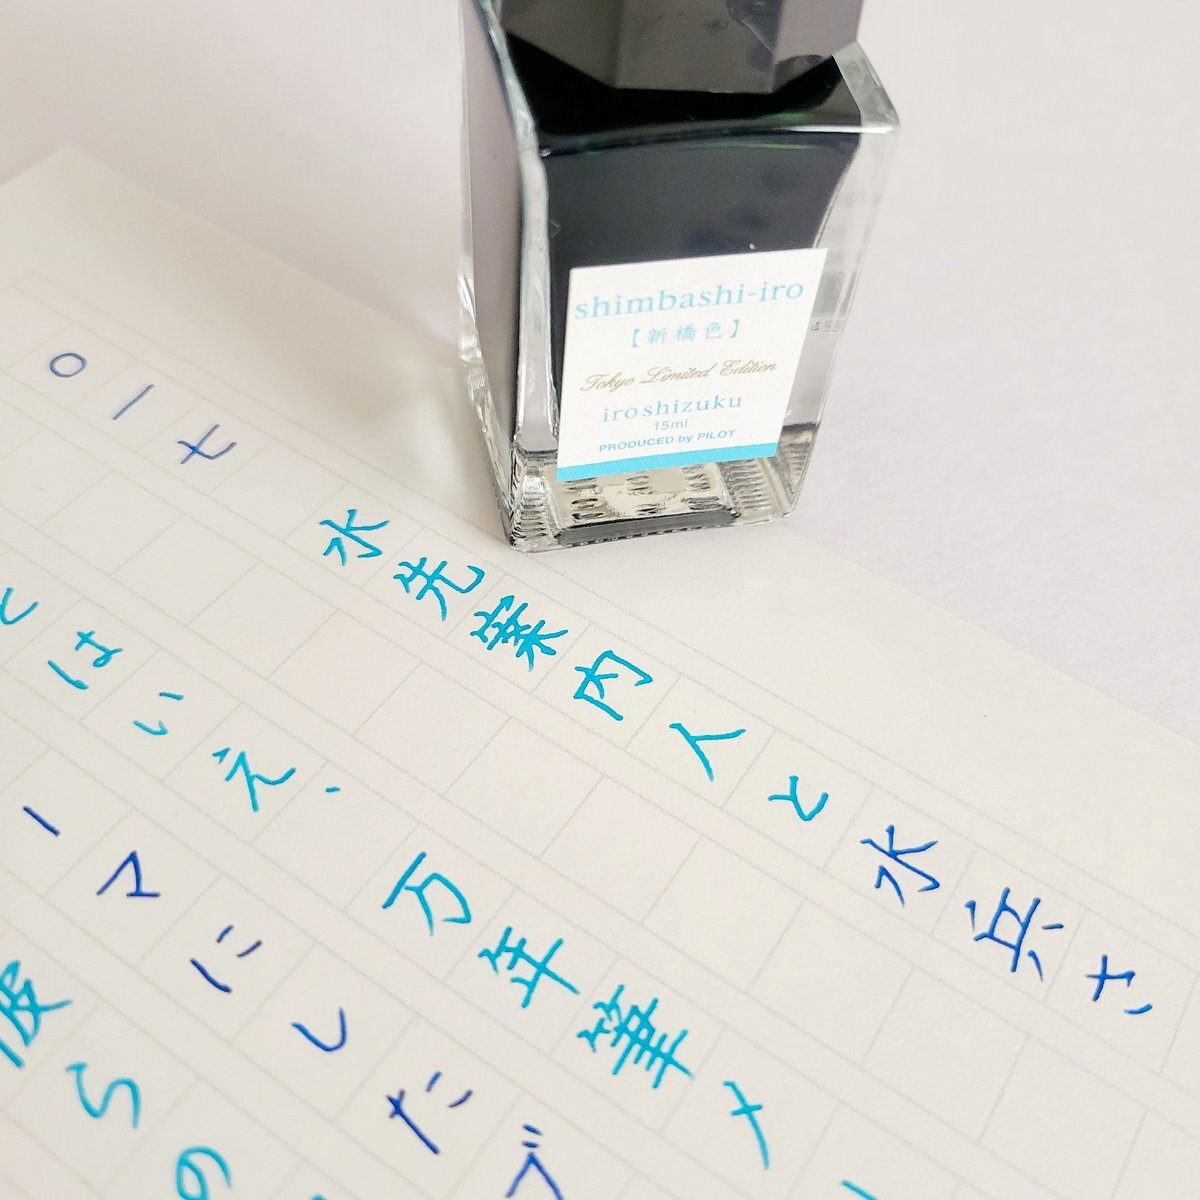 shimbashi-iro
【新橋色】
Tokyo Limited Edition
iroshizuku
15ml
PRODUCED by PILOT
〇一七 水先案内人と水兵さ
とはいえ、万年筆メ
ーマにしたブ
彼らの